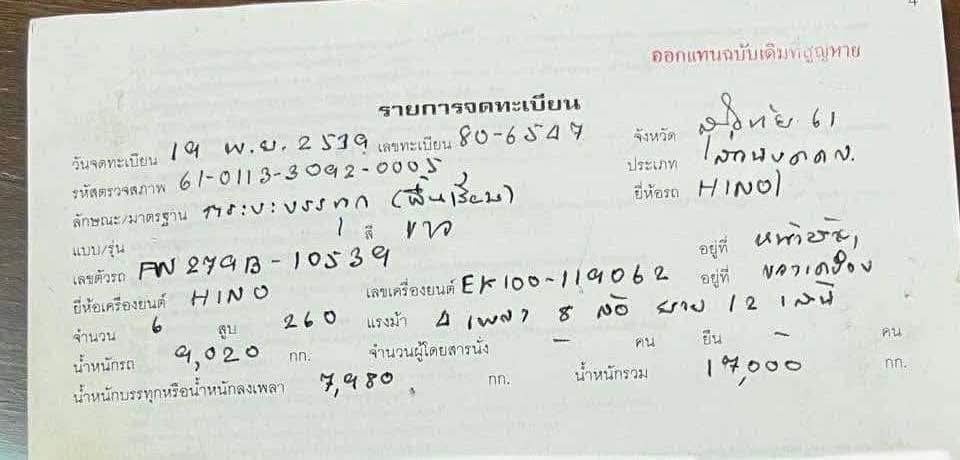 ออกแทนฉบับเดิมที่สูญหาย
รายการจดทะเบียน
วันจดทะเบียน 19 พ.ย. 2539 เลขทะเบียน 80-6547 จังหวัด อุทัย 61
รหัสตรวจสภาพ 61-0113-3092-0005 ประเภท
ลักษณะ/มาตรฐาน กระบะบรรทุก (พื้นเรียบ) ยี่ห้อรถ HINO
แบบ/รุ่น สี ขาว
เลขตัวรถ FN 279B-10539 อยู่ที่
ยี่ห้อเครื่องยนต์ HINO เลขเครื่องยนต์ EK100-119062 อยู่ที่
จำนวน 6 สูบ 260 แรงม้า 4 เพลา 8 ล้อ ยาง 12 เส้น
น้ำหนักรถ 9,020 กก. จำนวนผู้โดยสารนั่ง - คน ยืน - คน
น้ำหนักบรรทุกหรือน้ำหนักลงเพลา 7,980 กก. น้ำหนักรวม 17,000 กก.